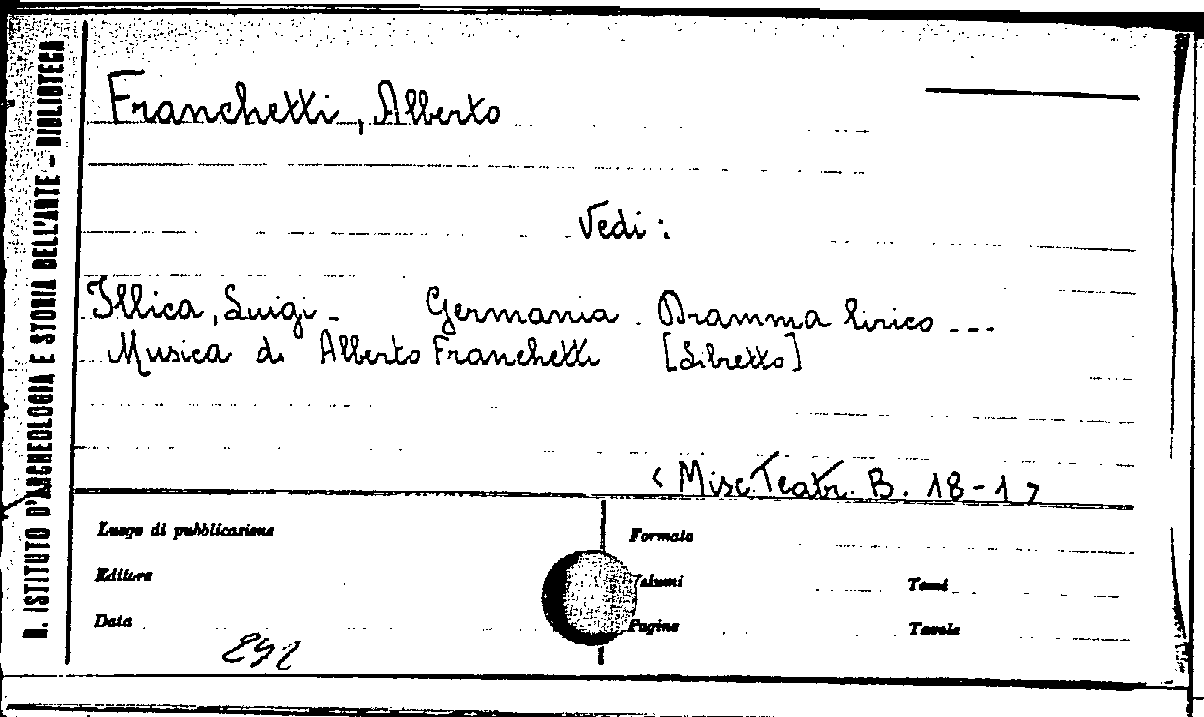 R. ISTITUTO D'ARCHEOLOGIA E STORIA DELL'ARTE - BIBLIOTECA
Franchetti, Alberto
Vedi:
Illica, Luigi - Germania. Dramma lirico ...
Musica di Alberto Franchetti [Libretto]
< Misc. Teatr. B. 18-1 >
Luogo di pubblicazione
Formato
Editore
Volumi
Tomi
Data
Pagine
Tavole